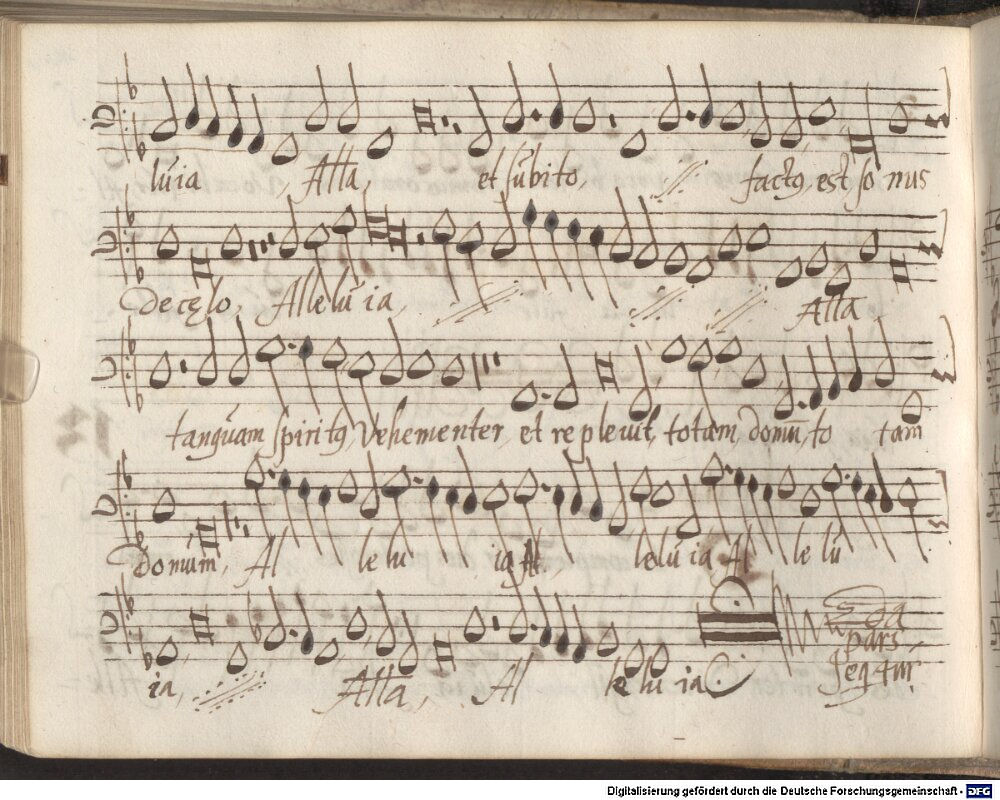 luia, Alla, et subito, ·//· factq est so nus
De cęlo, Allelu ia, ·//· ·//· ·//· Alla
tanquam spiritq Vehementer, et repleuit, totam, domū, to tam
Domum, Al le lu ia, Al, lelu ia, Al le lu
ia, ·//· Alla, Al le lu ia
2da
pars
seqtur.
Digitalisierung gefördert durch die Deutsche Forschungsgemeinschaft - DFG